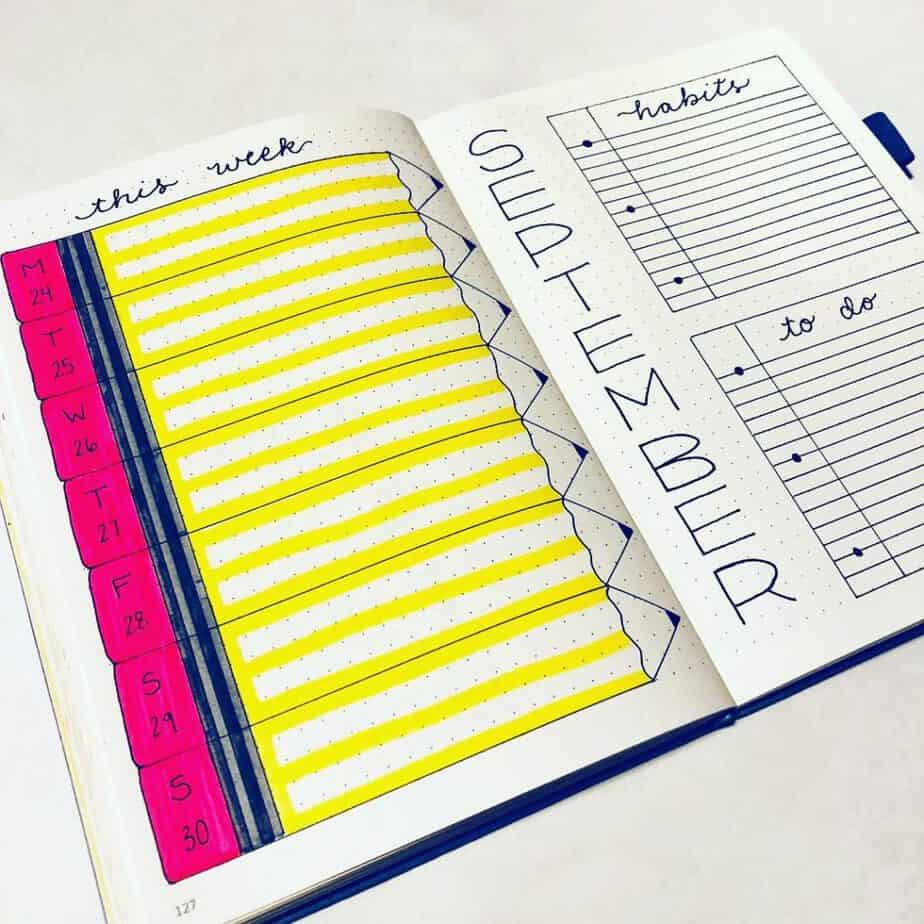 this week
M
24
T
25
W
26
T
27
F
28
S
29
S
30
127
SEPTEMBER
habits
to do